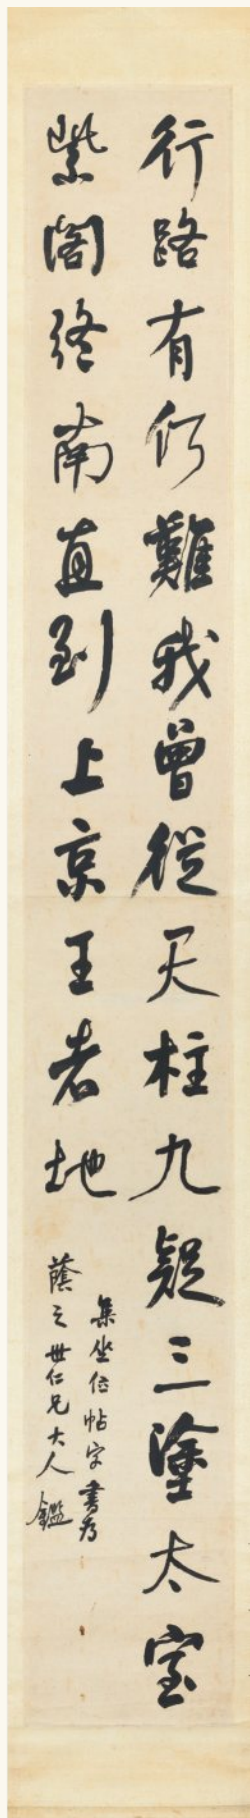 行路有何難我曾從天柱九疑三塗太室
紫閣終南直到上京王者地
集坐位帖字書為
蔭之世仁兄大人鑑